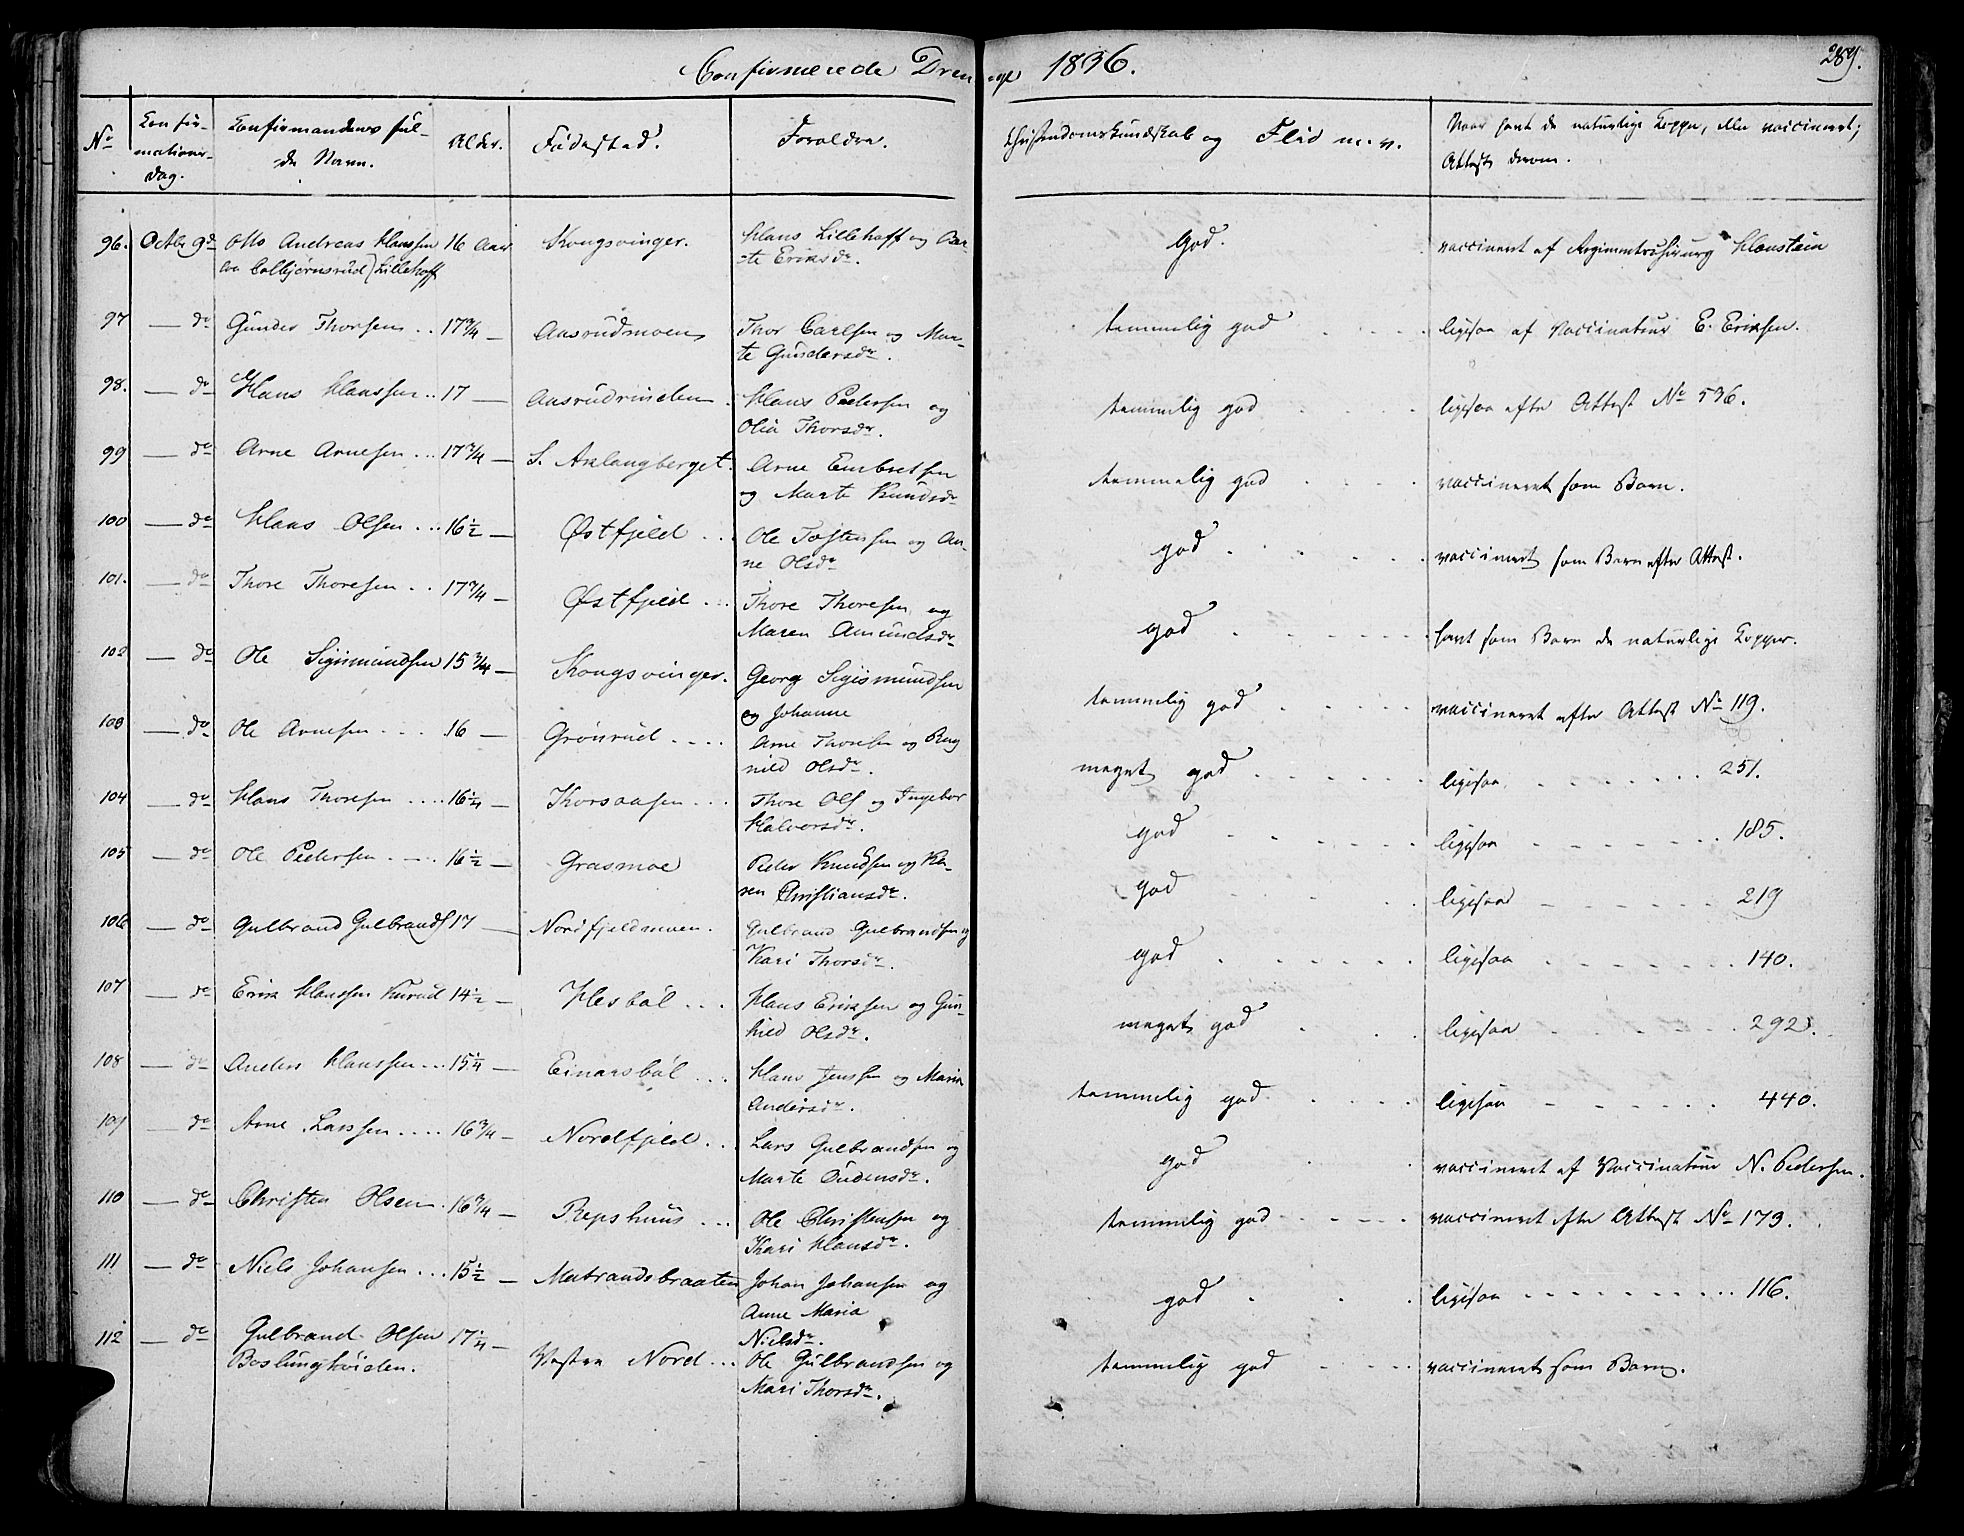 Confirmerede Drenge 1836.
289.
No
Confir-
mations-
dag.
Confirmandens ful-
de Navn.
Alder.
Fødested.
Forældre.
Christendomskundskab og Flid m. v.
Naar havt de naturlige Kopper, eller vaccineret;
Attest derom.
96. Octbr 9de Otto Andreas Hanssen 16 Aar Kongsvinger. Hans Lillehoff og Bar-
Colbjørnsrud) Lillehoff
te Eriksdr.
God.
vaccineret af Regimentschirurg Hanstein
97 — do Gunder Thorsen .. 17 3/4 — Aasrudmoen Thor Carlsen og Mar-
te Gundersdr.
temmelig god
ligesaa af Vaccinateur E. Eriksen.
98. — do Hans Hanssen .. 17 — Aasrudvinden Hans Pedersen og
Olia Thorsdr.
temmelig god
ligesaa efter Attest No 536.
99 — do Arne Arnesen ... 17 3/4 — S. Aslangberget. Arne Embretsen
og Marte Knudsdr
temmelig god
vaccineret som Barn.
100 — do Hans Olsen ... 16 1/2 — Østfjeld ... Ole Tostensen og An-
ne Olsdr
god
vaccineret som Barn efter Attest.
101. — do Thore Thoresen .. 17 3/4 — Østfjeld ... Thore Thoresen og
Maren Amundsdr
god
havt som Barn de naturlige Kopper.
102 — do Ole Sigismundsen 15 3/4 — Kongsvinger. Georg Sigismundsen
og Johanne
temmelig god
vaccineret efter Attest No 119.
103 — do Ole Arnesen .... 16 — Grønrud .... Arne Thoresen og Rag
nild Olsdr.
meget god
ligesaa 251.
104 — do Hans Thoresen .... 16 1/4 — Korsaasen ... Thore Ols og Ingebor
Halvorsdr.
god
ligesaa 185.
105 — do Ole Pedersen .... 16 1/2 — Grasmoe Peder Knudsen og Ka-
ren Christiansdr.
god
ligesaa 219
106 — do Gulbrand Gulbrands 17 — Nordfjeldmoen. Gulbrand Gulbrandsen og
Kari Thorsdr.
god
ligesaa 140.
107 — do Erik Hanssen Kurud 14 1/2 — Hesbøl ... Hans Eriksen og Gun-
hild Olsdr.
meget god
ligesaa 292.
108 — do Anders Hanssen ... 15 1/4 — Einarsbøl ... Hans Jenssen og Maria
Andersdr.
temmelig god
ligesaa 440.
109 — do Arne Larssen .... 16 3/4 — Nordfjeld ... Lars Gulbrandsen og
Marte Oudensdr.
god
vaccineret af Vaccinateur N. Pedersen.
110 — do Christen Olsen . 16 3/4 — Repshuus ... Ole Christensen og
Kari Hansdr.
temmelig god
vaccineret efter Attest No 173.
111 — do Niels Johansen ... 15 1/2 — Matrandsbraaten Johan Johansen og
Anne Maria
Nielsdr.
god
ligesaa 116.
112 — do Gulbrand Olsen 17 1/4 — Vestre Nord ... Ole Gulbrandsen og
Baslunghviden.
Mari Thorsdr.
temmelig god
vaccineret som Barn.